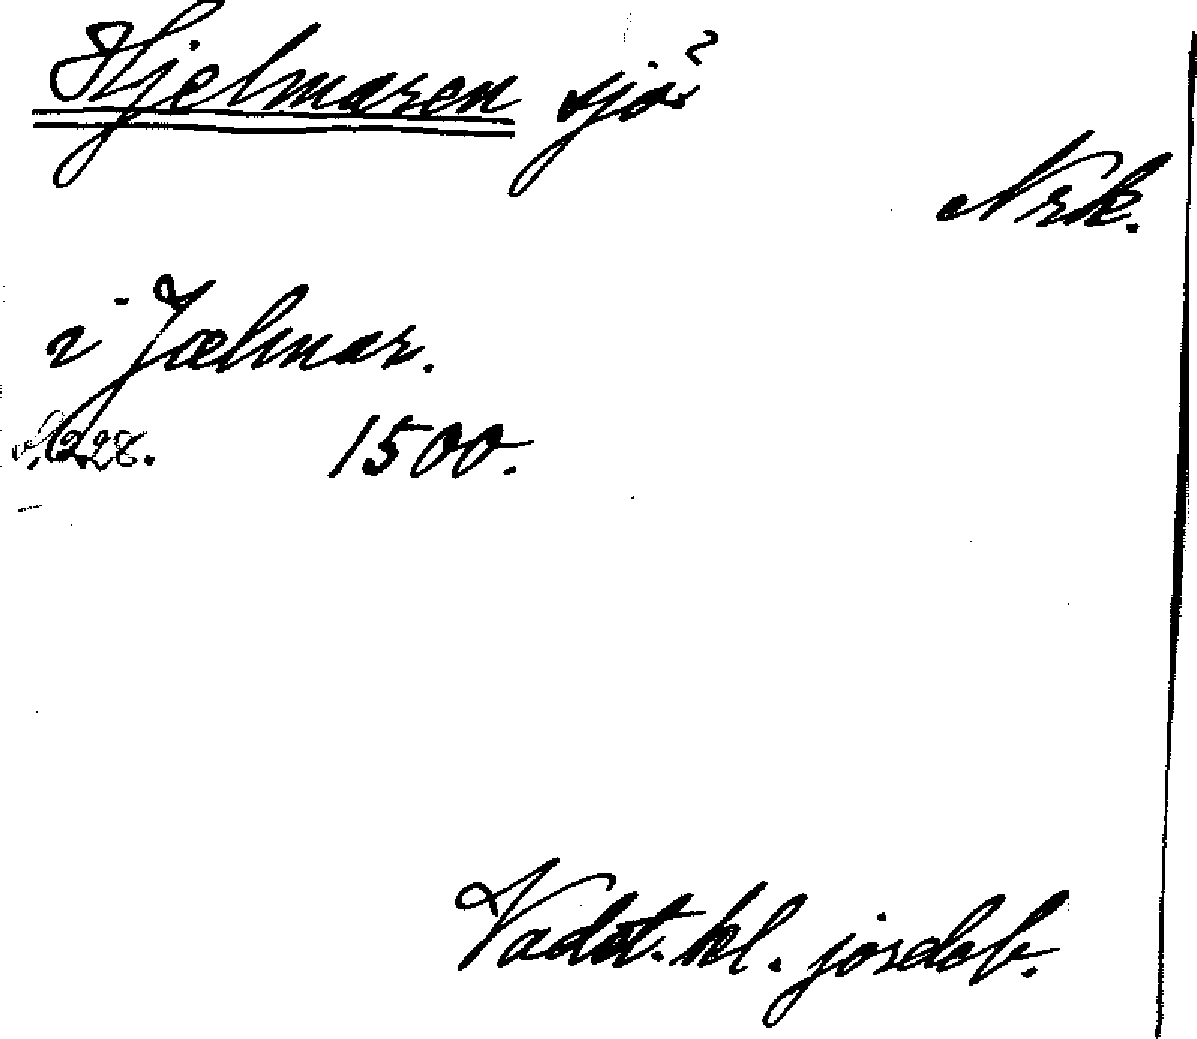 Hjelmaren sjö?
Nrk.
i Jælmar.
s. 228. 1500.
Vadst. kl. jordeb.